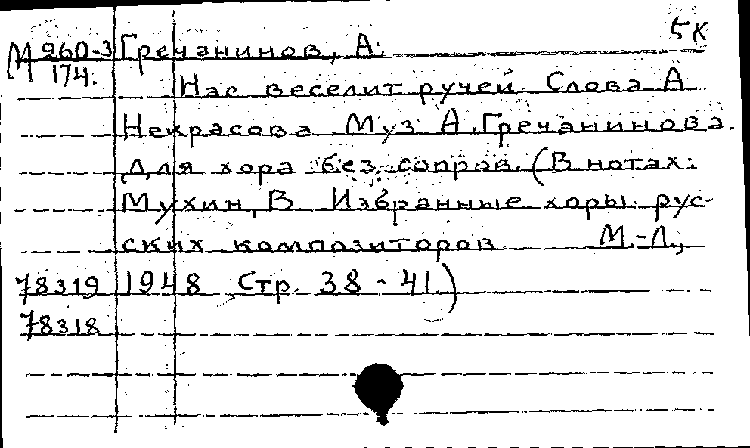 5К
М 960-3 Гречанинов, А.
174.
Нас веселит ручей. Слова А
Некрасова Муз А. Гречанинова.
Для хора без сопров. (В нотах:
Мухин, В Избранные хоры рус-
ских композиторов М.-Л.,
78319 1948 Стр. 38 - 41.)
78318